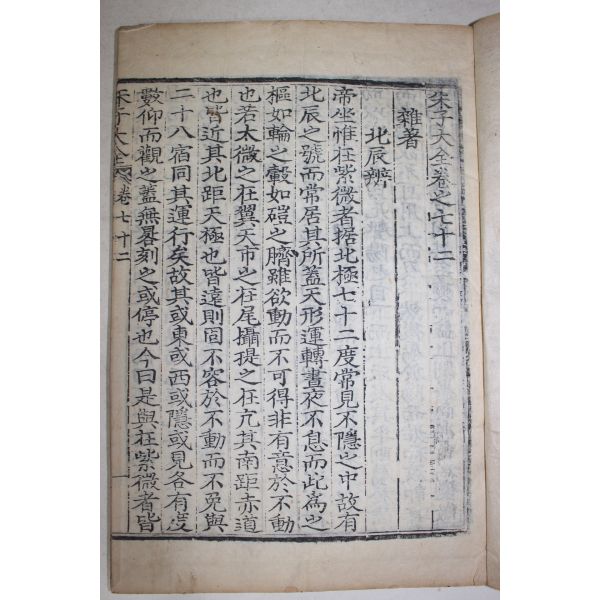 朱子大全卷之七十二
雜著
北辰辨
帝坐惟在紫微者据北極七十二度常見不隱之中故有
北辰之號而常居其所蓋天形運轉晝夜不息而此爲之
樞如輪之轂如磑之臍雖欲動而不可得非有意於不動
也若太微之在翼天市之在尾攝提之在亢其南距赤道
也皆近其北距天極也皆遠則固不容於不動而不免與
二十八宿同其運行矣故其或東或西或隱或見各有度
數仰而觀之蓋無晷刻之或停也今曰是與在紫微者皆
朱子大全 卷七十二
一